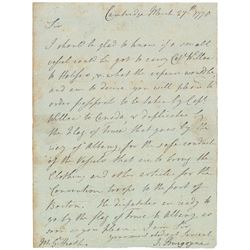 Cambridge March 27th 1778
Sir
I should be glad to know if a small
vessel could be got to carry Capt. Willoe
to Halifax, & what the expence would be,
and em to desire you will please to
order passports to be taken by Capt
Willoe to Canada, & duplicates
the Flag of truce that goes by the
way of Albany, for the safe conduct
of the Vessels that are to bring the
Cloathing and other articles for the
Convention troops to the port of
Boston. The dispatches are ready to
go by the flag of truce to Albany, as
soon as you please. I am Sir
your most obedient servant
M. G. Heath. J. Burgoyne